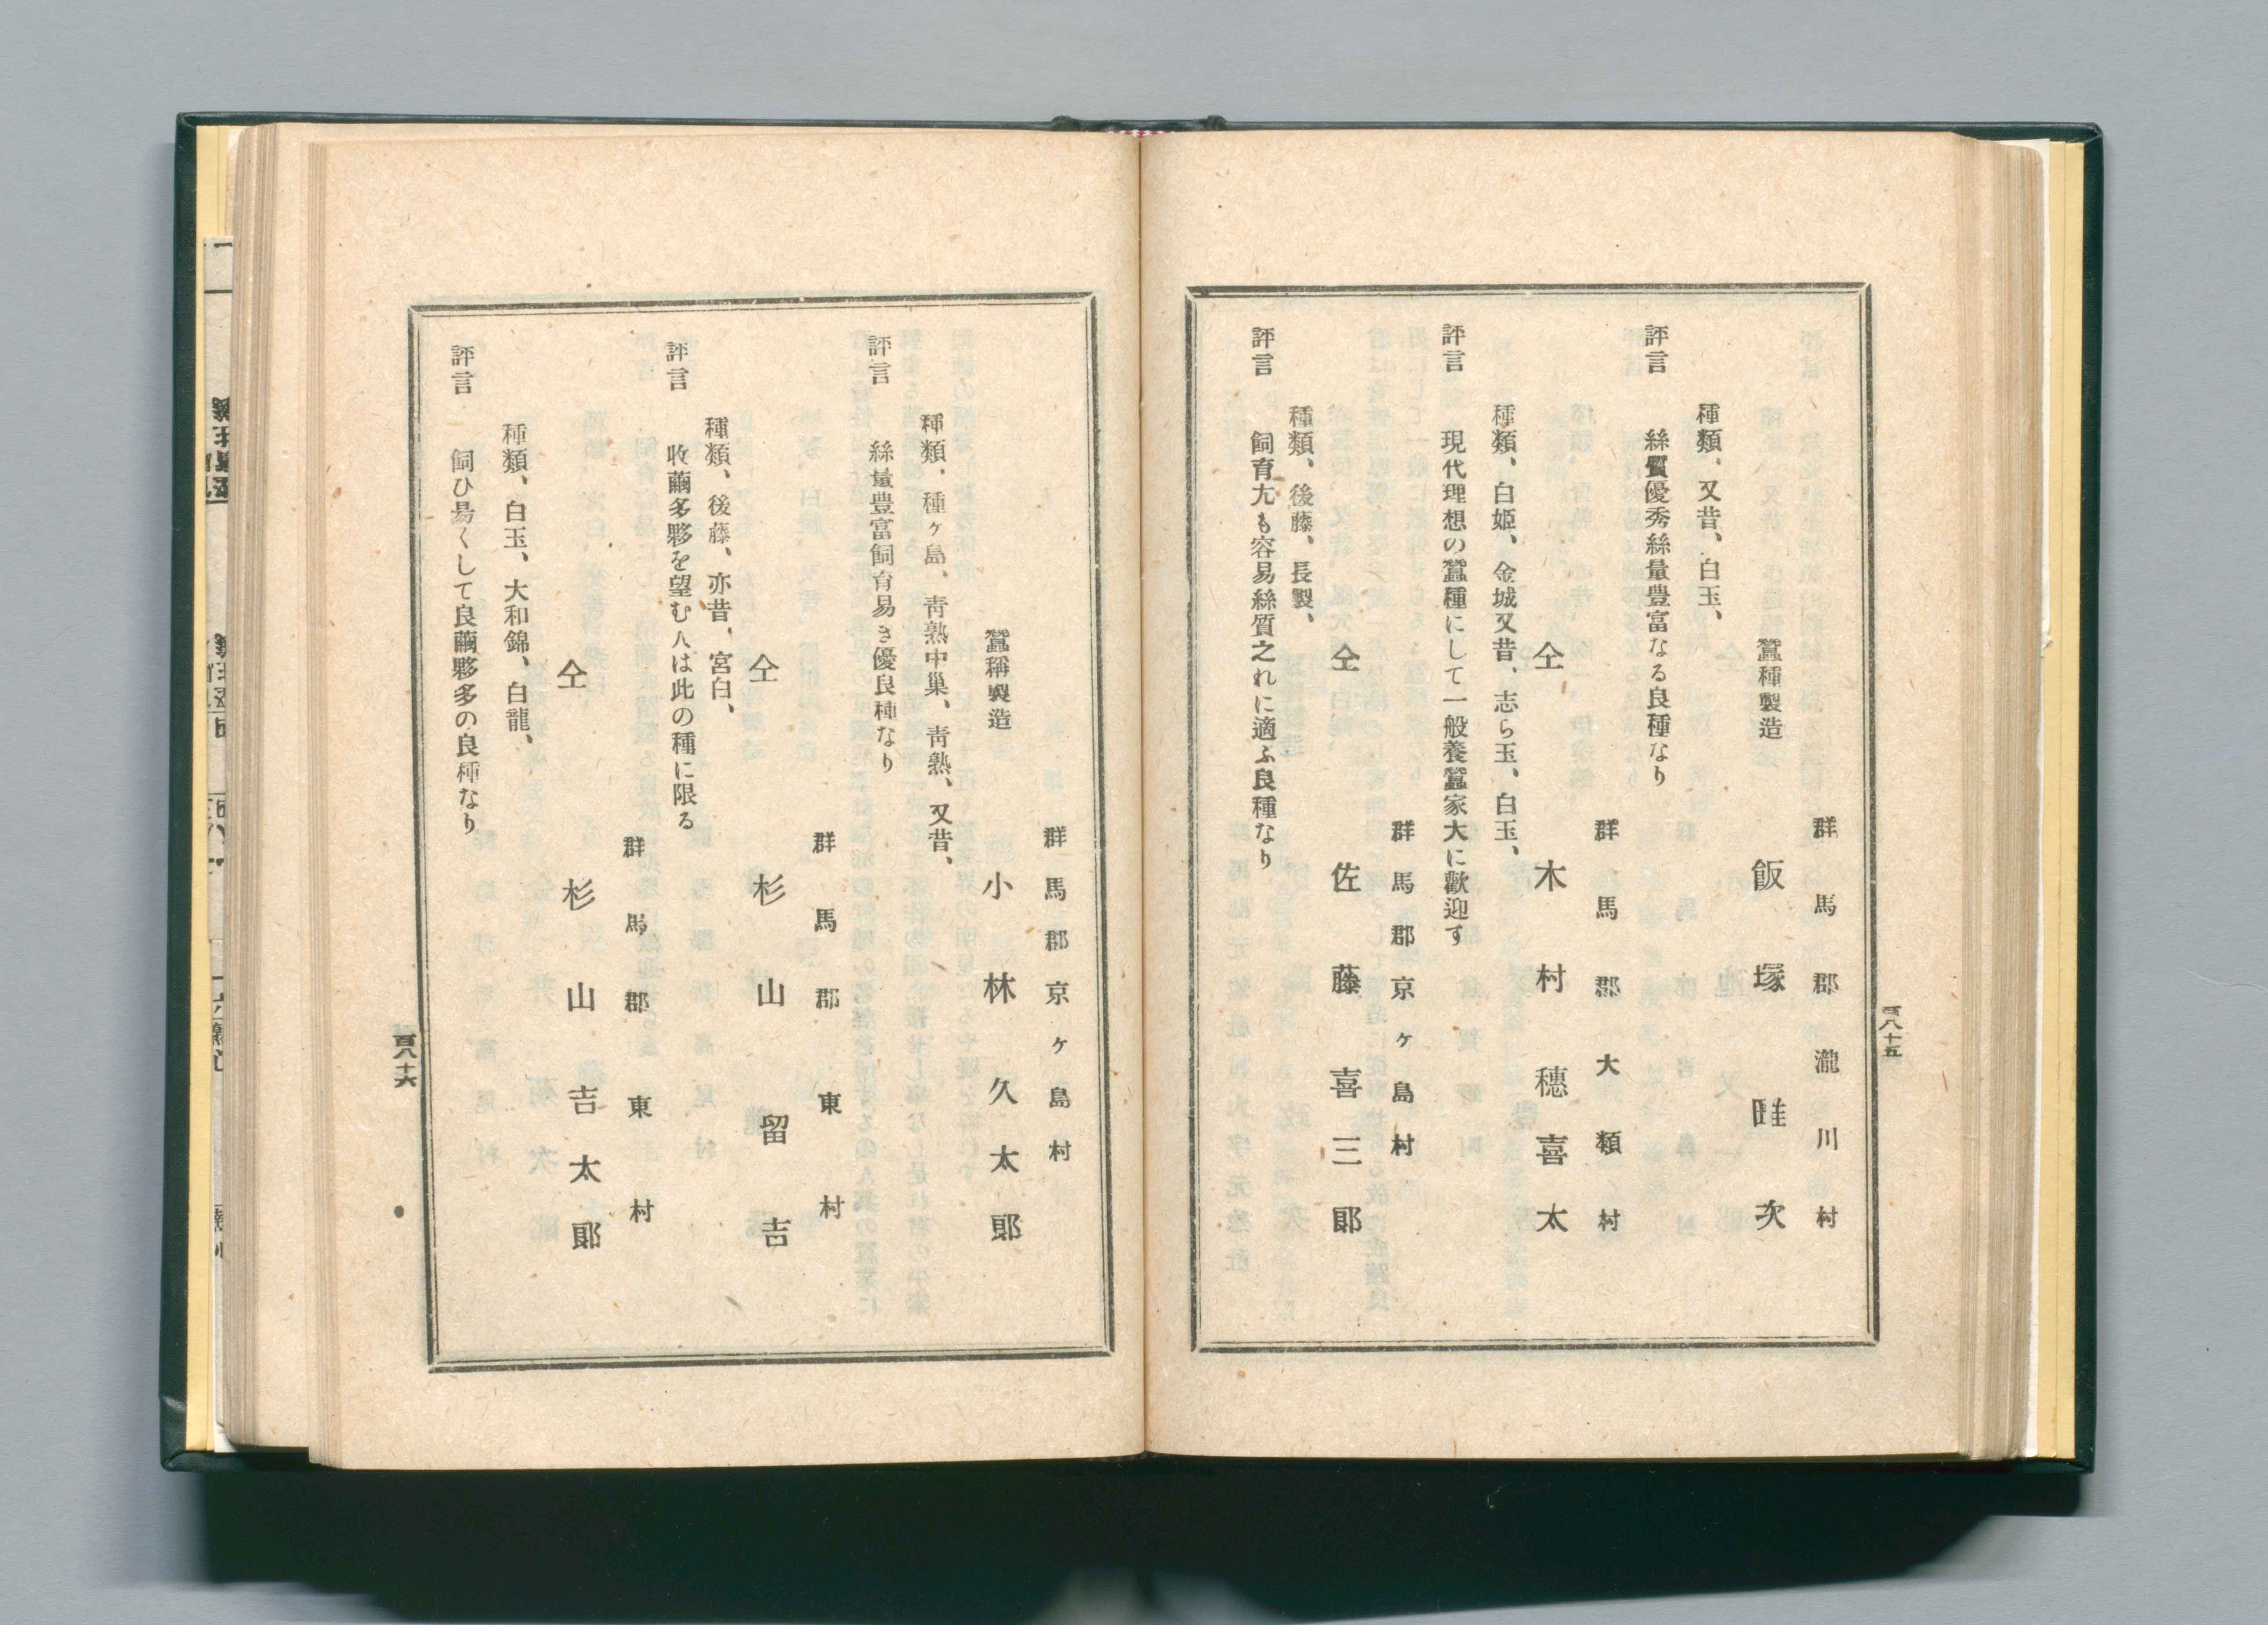 百八十五
群馬郡瀧川村
蠶種製造　飯塚畦次
種類、又昔、白玉、
評言　絲質優秀絲量豊富なる良種なり
群馬郡大類村
仝　木村穗喜太
種類、白姫、金城又昔、志ら玉、白玉、
評言　現代理想の蠶種にして一般養蠶家大に歡迎す
群馬郡京ヶ島村
仝　佐藤喜三郎
種類、後藤、長製、
評言　飼育尤も容易絲質之れに適ふ良種なり
群馬郡京ヶ島村
蠶稱製造　小林久太郎
種類、種ヶ島、靑熟中巢、靑熟、又昔、
評言　絲量豊富飼育易き優良種なり
群馬郡東村
仝　杉山留吉
種類、後藤、亦昔、宮白、
評言　收繭多夥を望む人は此の種に限る
群馬郡東村
仝　杉山吉太郎
種類、白玉、大和錦、白龍、
評言　飼ひ易くして良繭夥多の良種なり
百八十六